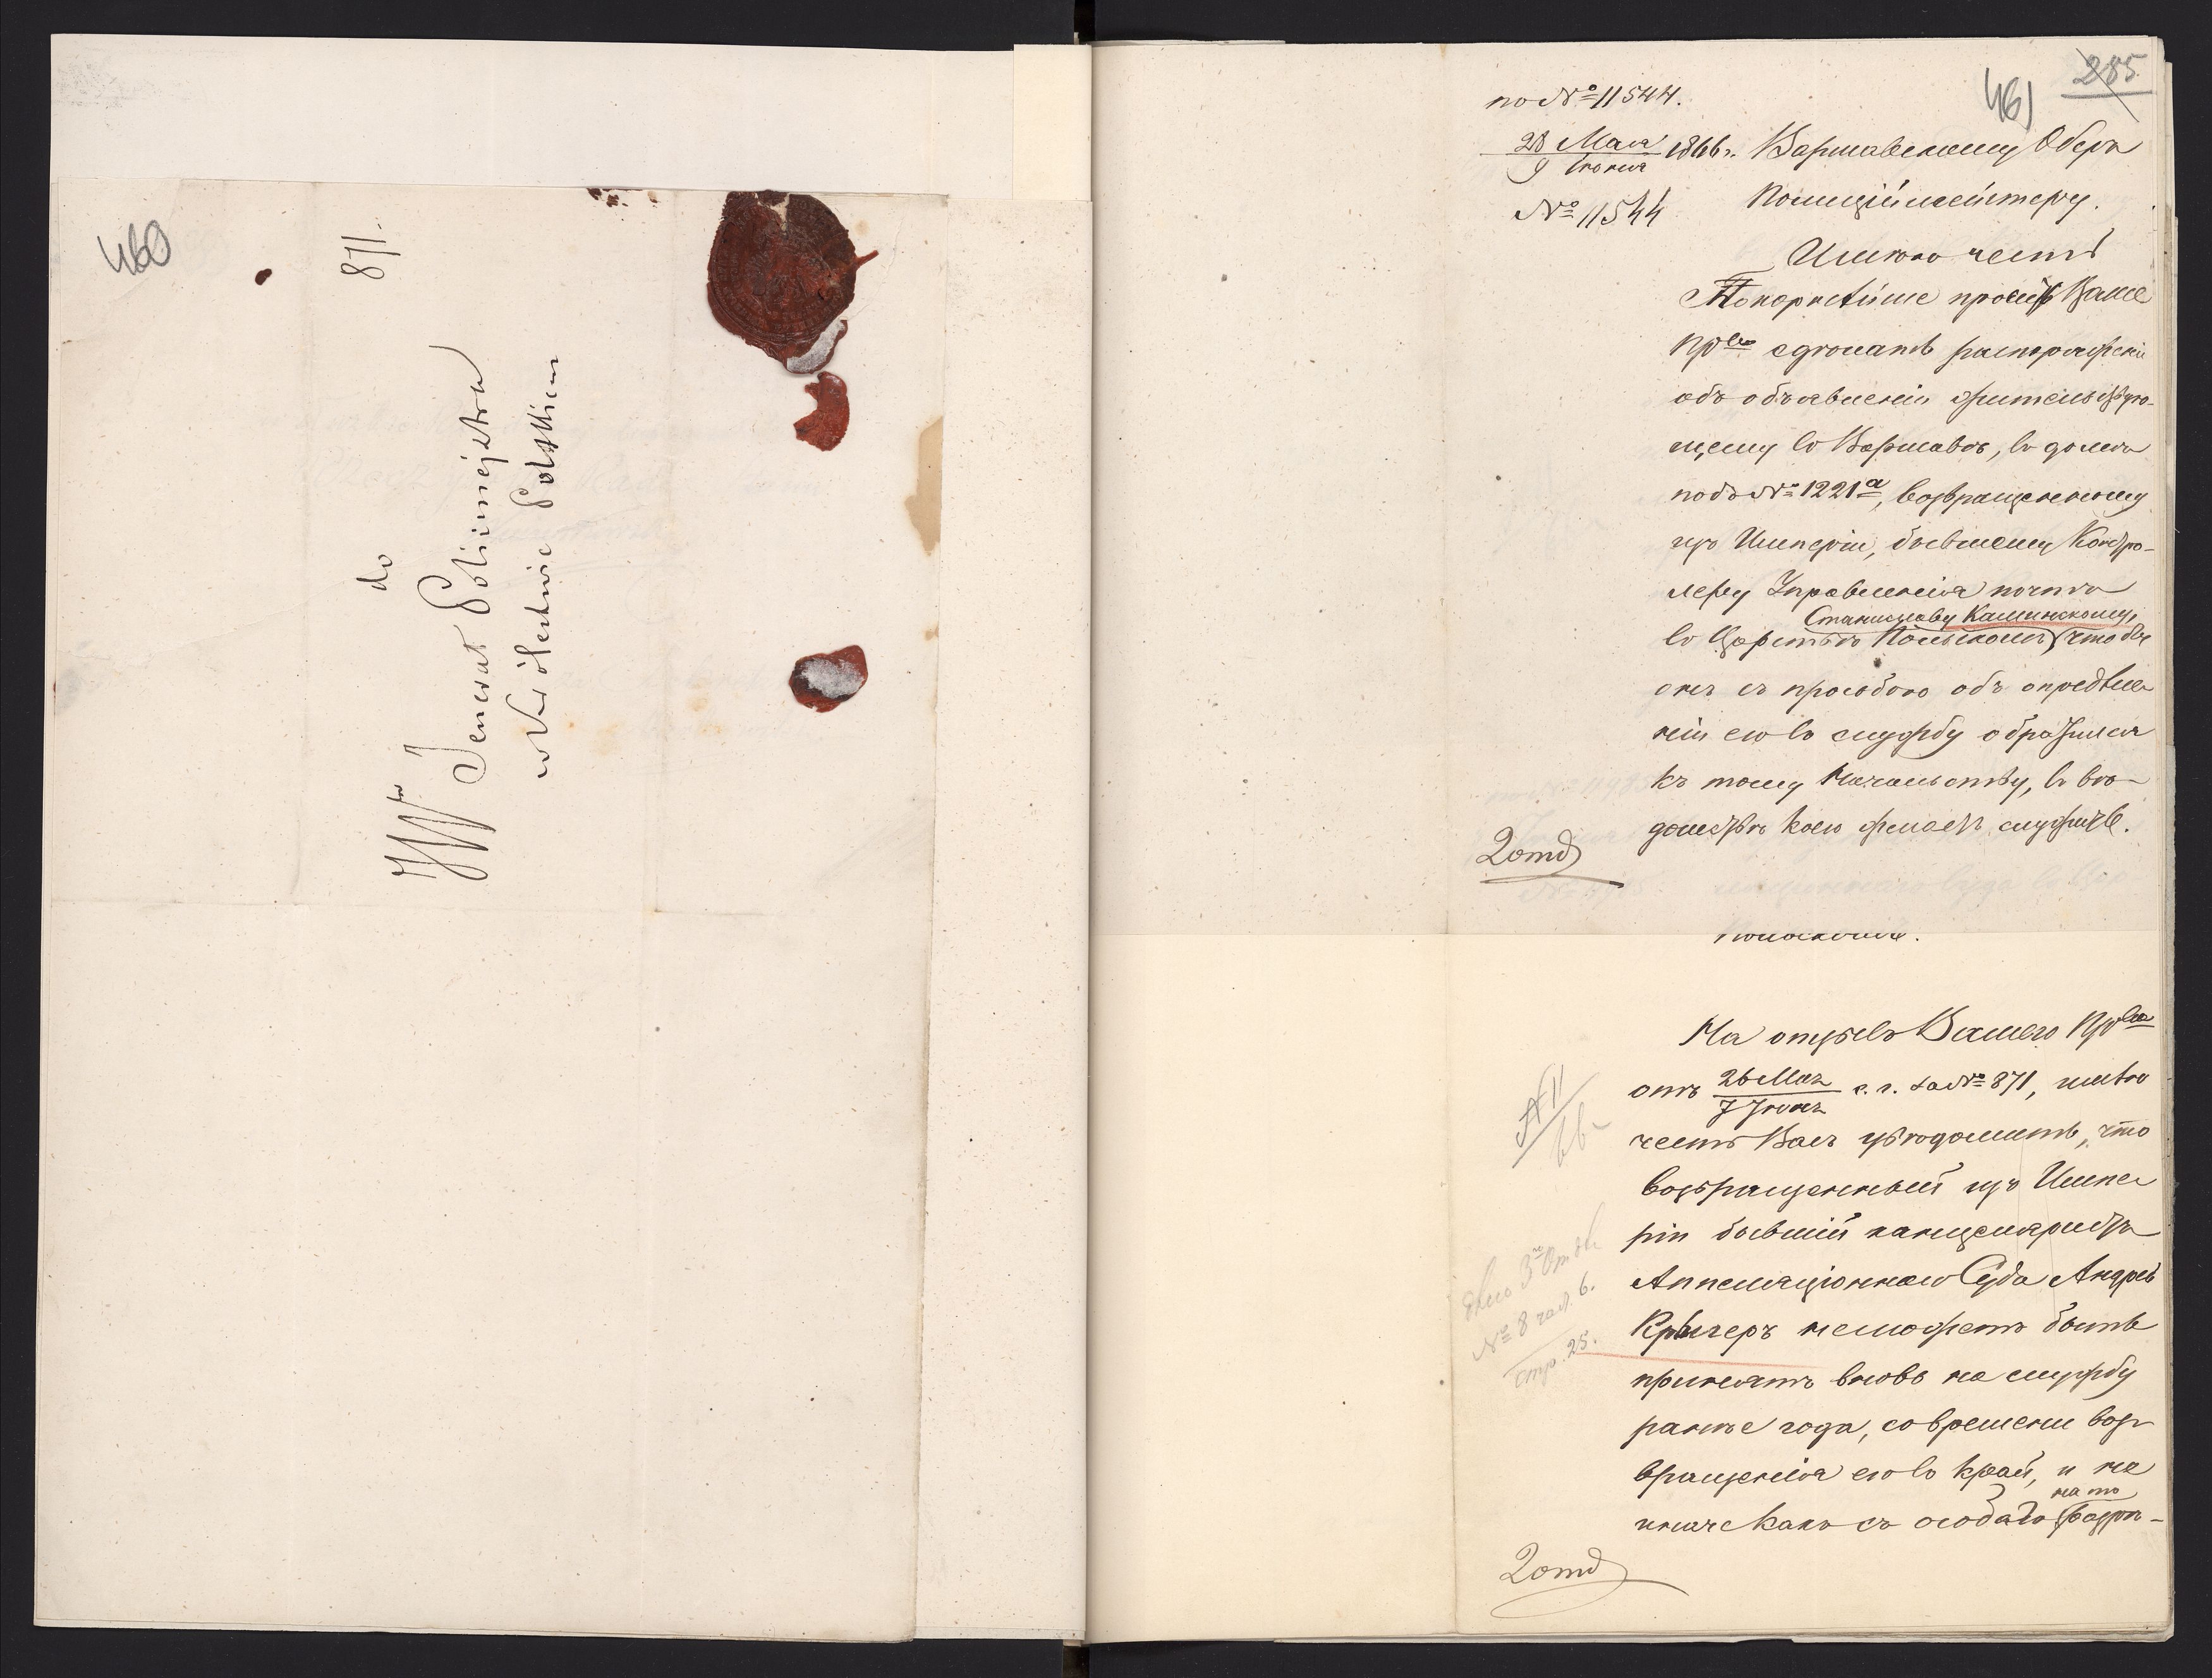 460
871.
do
JW Jenerał Policmejstra
w Królestwie Polskiem
285
461
по № 11544.
28 Мая / 9 Іюня 1866 г. Варшавскому Оберъ
№ 11544 Полиційместеру.
Имѣю честь
Покорнѣйше просить Ваше
Прво сдѣлать распоряженіе
объ объявленіи жительствую-
щему въ Варшавѣ, въ домѣ
подъ № 1221а, возвращенному
изъ Имперіи, бывшему Контро-
леру Управленія почтъ
Станиславу Каминскому,
въ Царствѣ Польскомъ что бы
онъ съ просьбою объ опредѣле
ніи его въ службу обратился
къ тому Начальству, въ вѣ-
домствѣ коего желаетъ служить.
2 отд
Польскомъ.
На отзывъ Вашего Прва
отъ 26 Мая / 7 Іюня с. г. за № 871, имѣю
честь Васъ увѣдомить, что
возвращенный изъ Импе
ріи бывшій канцеляристъ
Аппеляціоннаго Суда Андрей
Кригеръ неможетъ быть
принятъ вновь на службу
ранѣе года, со времени воз-
вращенія его въ край, и не
на то
иначе какъ съ особаго разрѣ-
2 отд
дѣло 3го Отдѣ
№ 8 час. 6.
стр. 25.